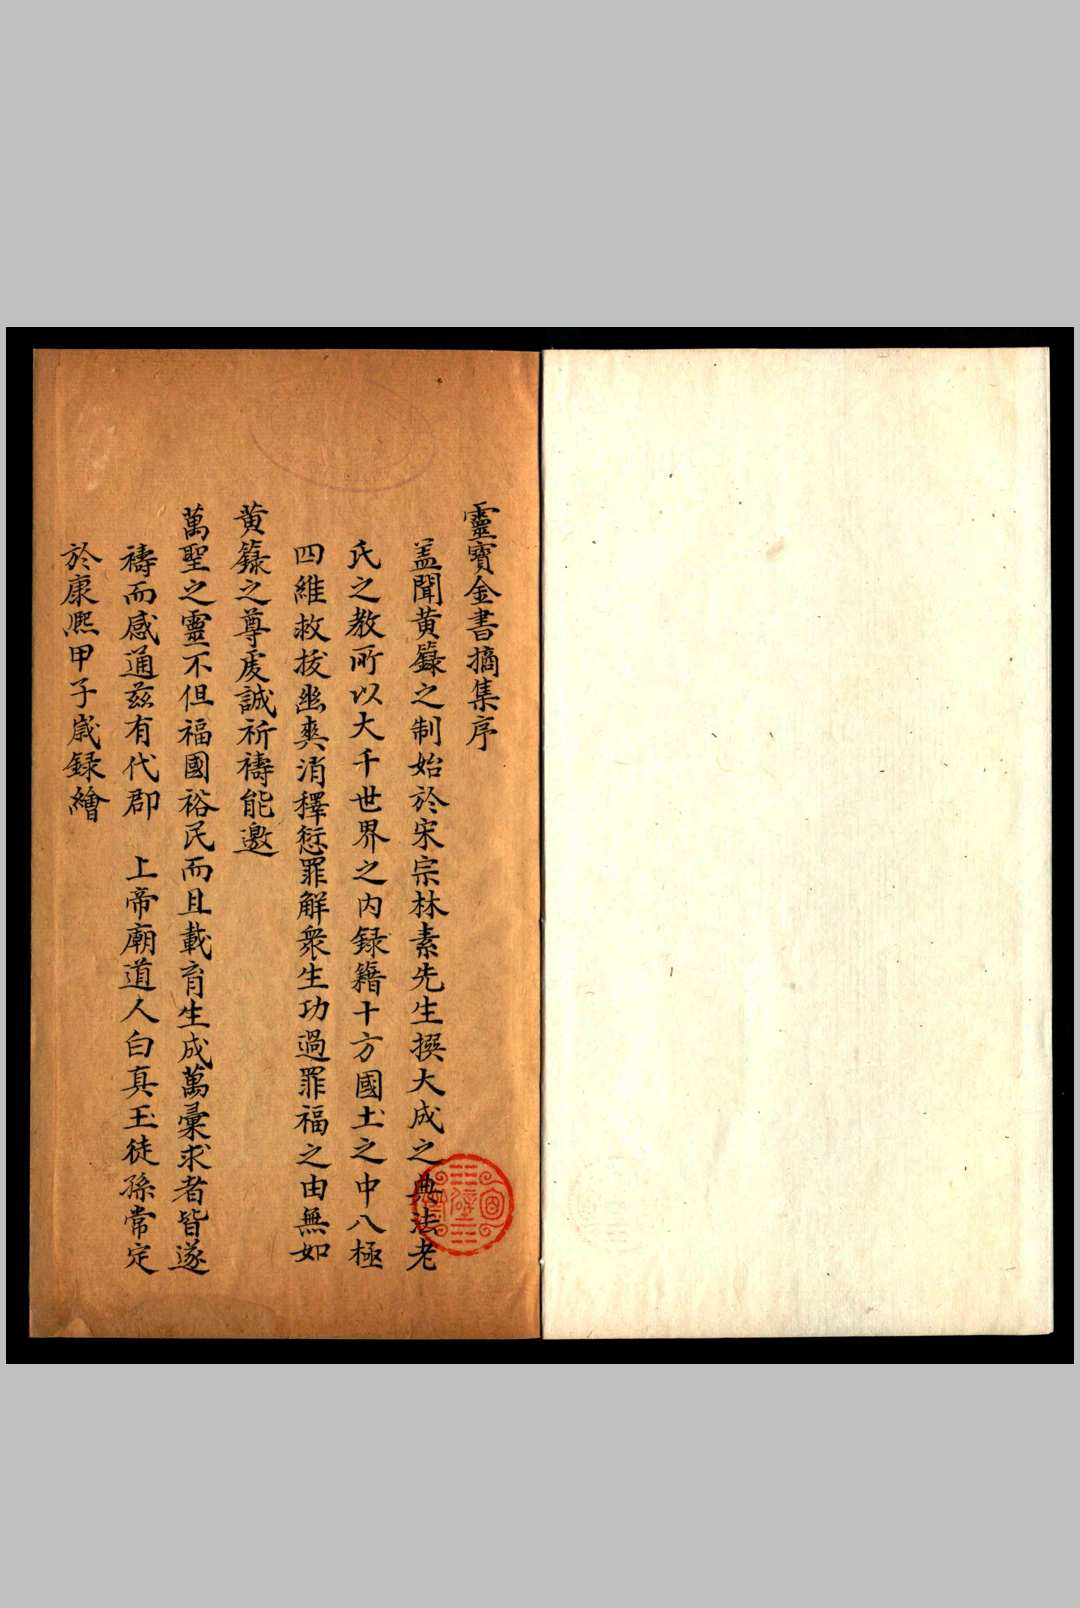 靈寶金書摘集序
盖聞黄籙之制始於宋宗林素先生撰大成之典法老
氏之教所以大千世界之内録籍十方國土之中八極
四維救拔幽爽消釋愆罪解衆生功過罪福之由無如
黄籙之尊虔誠祈禱能邀
萬聖之靈不但福國裕民而且載育生成萬彙求者皆遂
禱而感通兹有代郡 上帝廟道人白真玉徒孫常定
於康熙甲子歲録繪